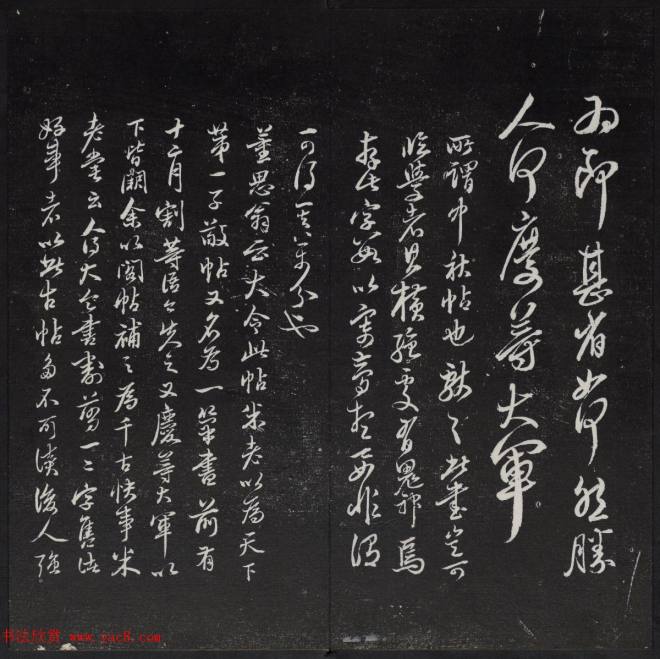 为即甚省如何然勝
人何慶等大軍
所謂中秋帖也獻之此書豈可
臨學者 橫 更有鬼神焉
存此字 以寄 想 要非謂
一可得其萬分也
董思翁云大令此帖米老以為天下
第一子敬帖又名為一筆書前有
十二月割等語今失之又慶等大軍以
下皆闕余以閣帖補之為千古快事米
老嘗云人得大令書割剪一二字售諸
好事者以此古帖每不可讀後人強
书法欣赏 www.yac8.com